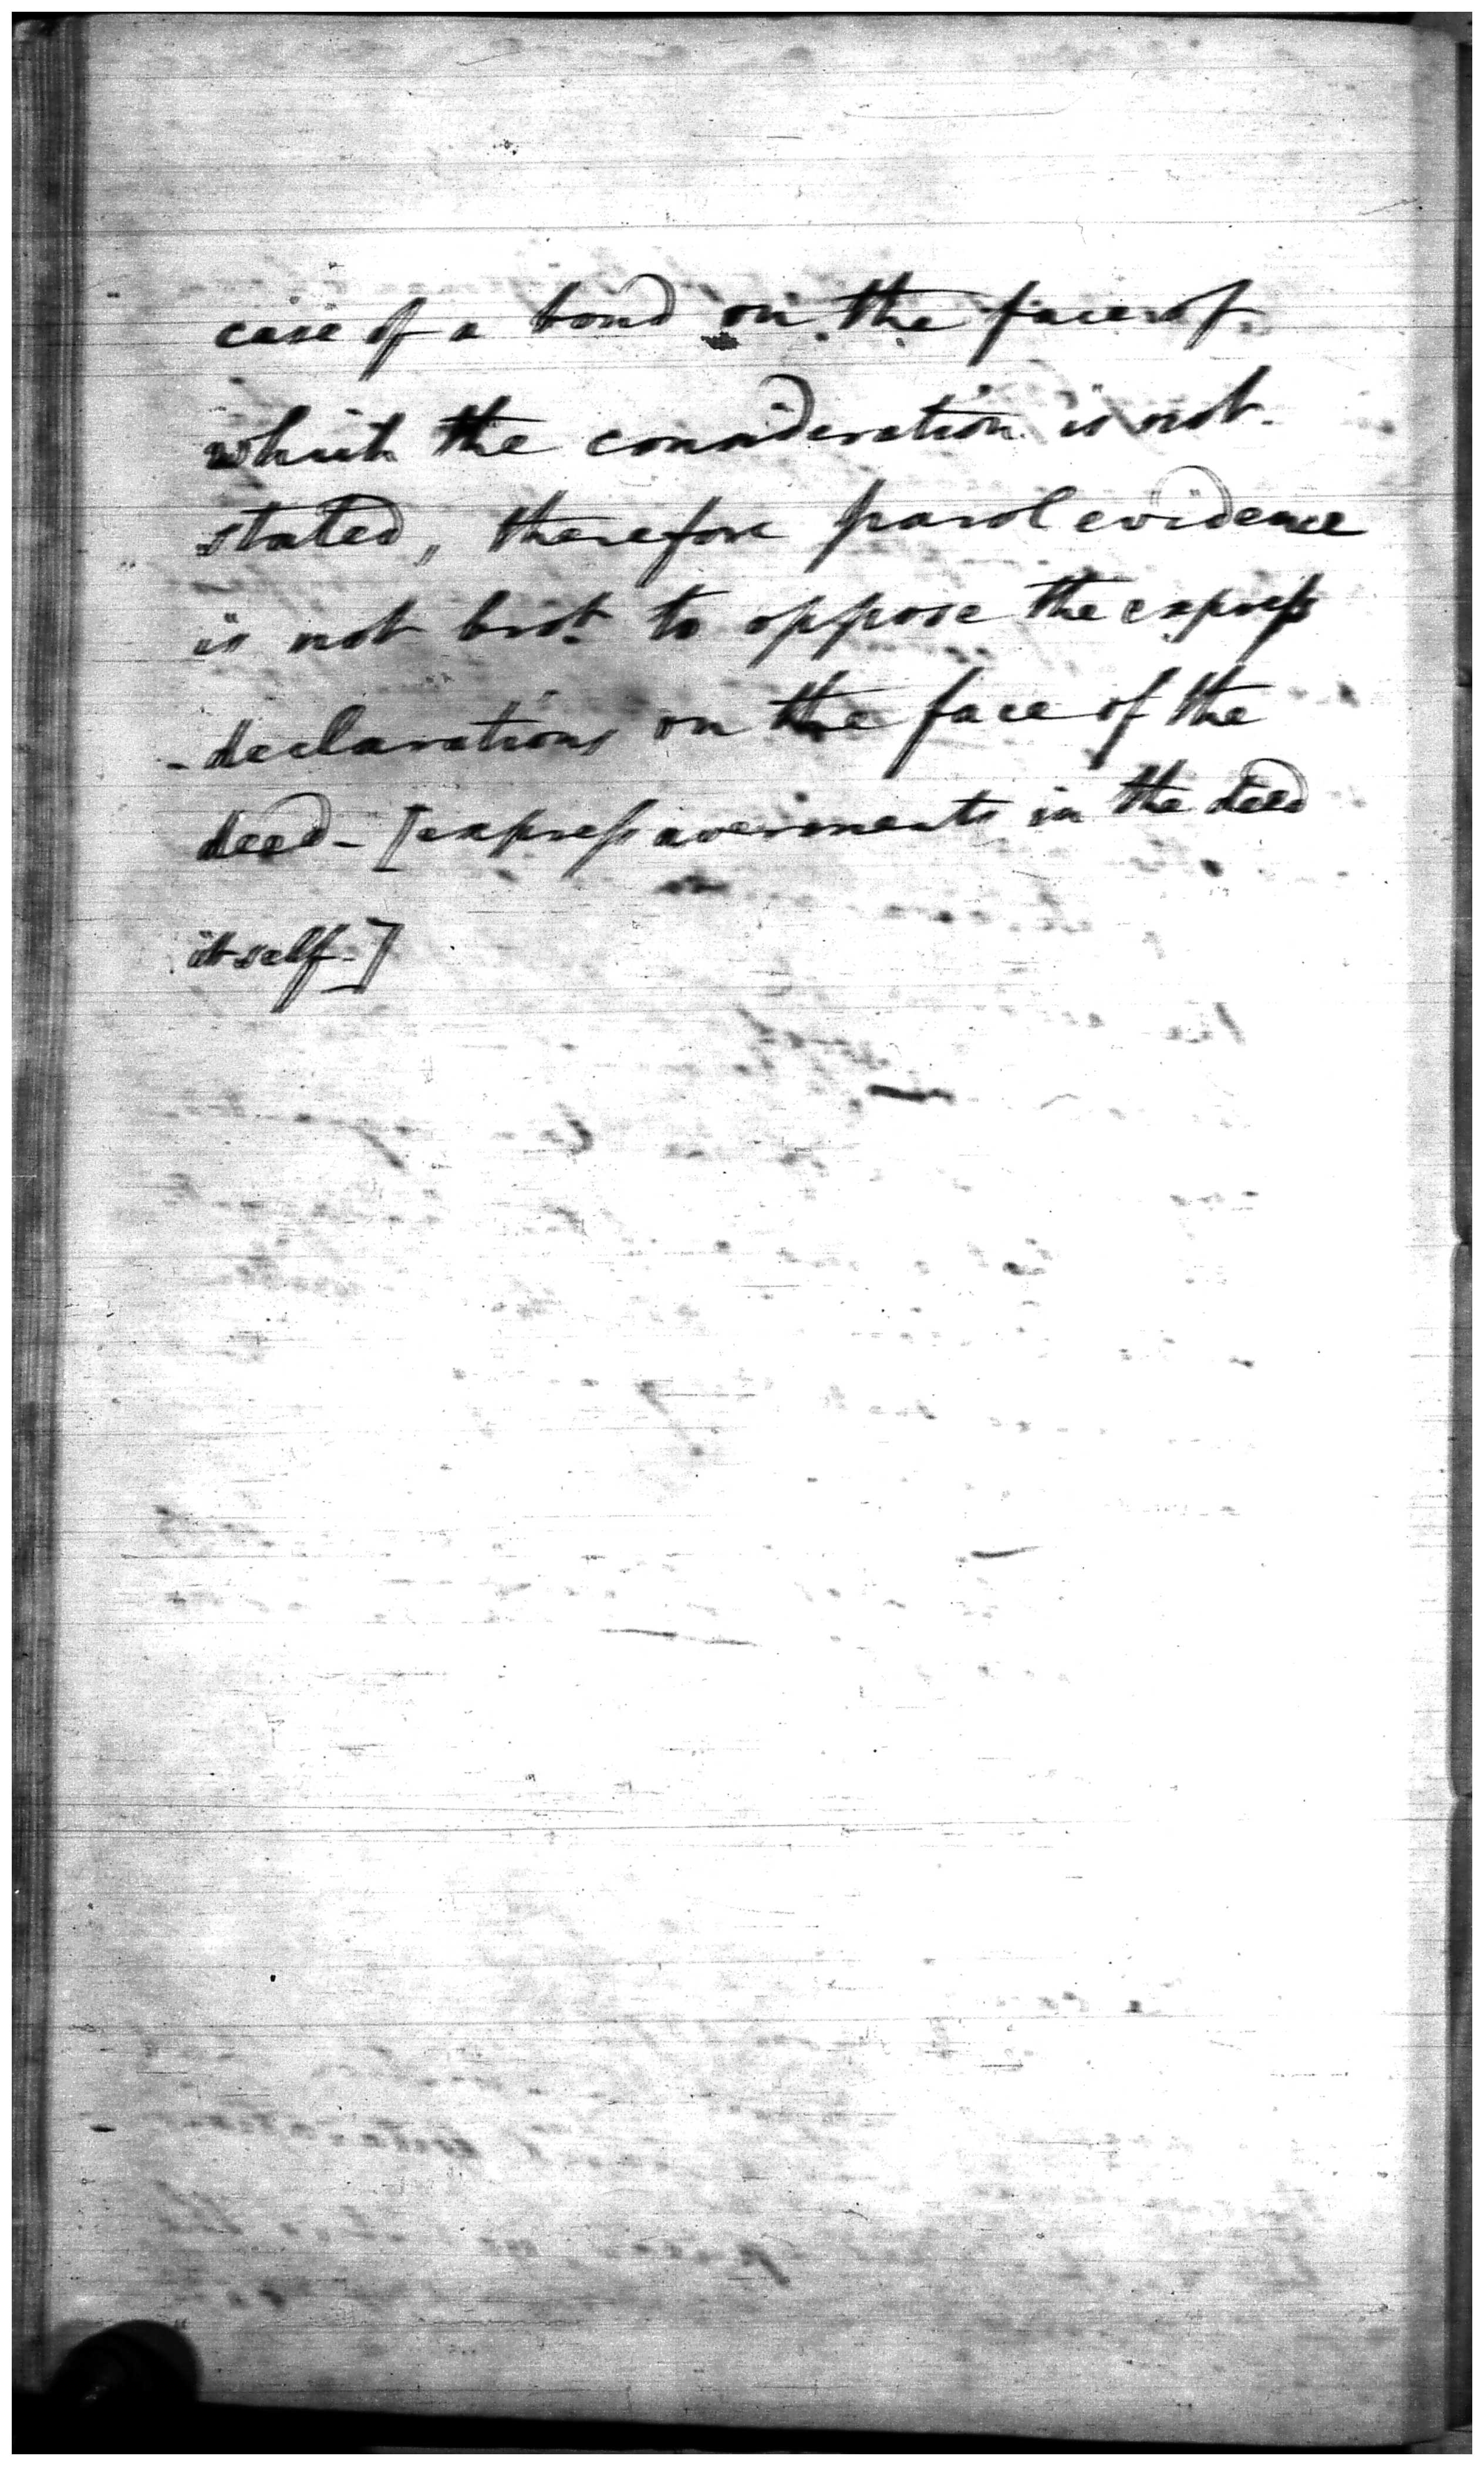 case of a bond on the face of
which the consideration is not
stated, therefore parol evidence
is not brot. to oppose the express
declarations on the face of the
deed - [express averments in the deed
itself-]